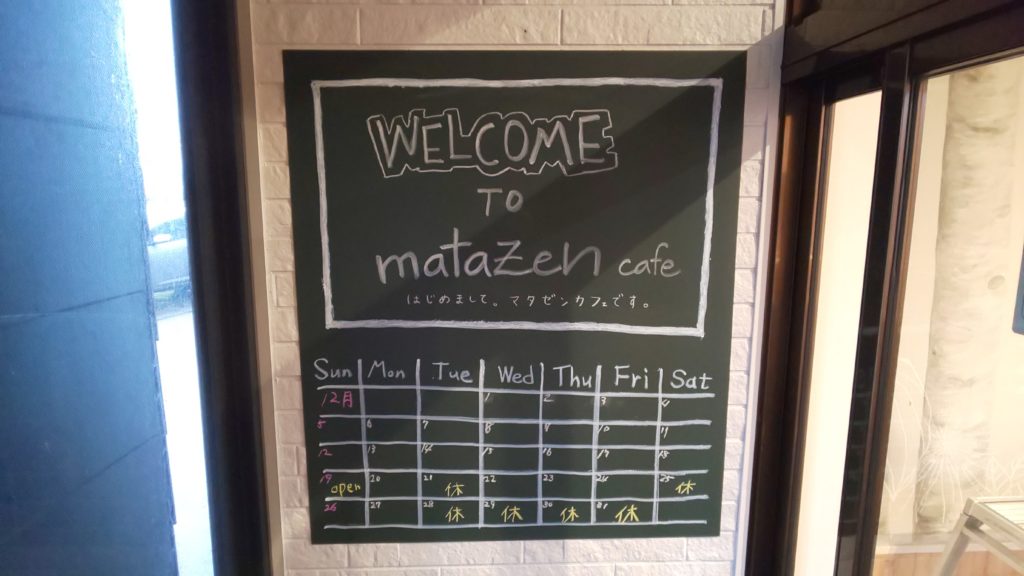 WELCOME
TO
matazen cafe
はじめまして。マタゼンカフェです。
Sun Mon Tue Wed Thu Fri Sat
12月 1 2 3 4
5 6 7 8 9 10 11
12 13 14 15 16 17 18
19 20 21 22 23 24 25
open 休 休
26 27 28 29 30 31
休 休 休 休